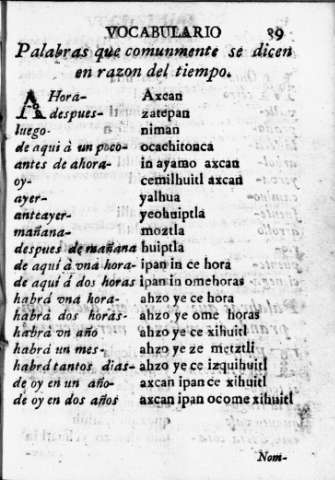 VOCABULARIO 89
Palabras que comunmente se dicen
en razon del tiempo.
AHora- Axcan
despues- zatepan
luego- niman
de aqui à un poco- ocachitonca
antes de ahora- in ayamo axcan
oy- cemilhuitl axcan
ayer- yalhua
anteayer- yeohuiptla
mañana- moztla
despues de mañana huiptla
de aquí à vna hora- ipan in ce hora
de aquí á dos horas ipan in omehoras
habrá vna hora- ahzo ye ce hora
habrá dos horas- ahzo ye ome horas
habrá vn año ahzo ye ce xihuitl
habrá un mes- ahzo ye ze metztli
habrá tantos dias- ahzo ye ce izquihuitl
de oy en un año- axcan ipan ce xihuitl
de oy en dos años axcan ipan ocome xihuitl
Nom-